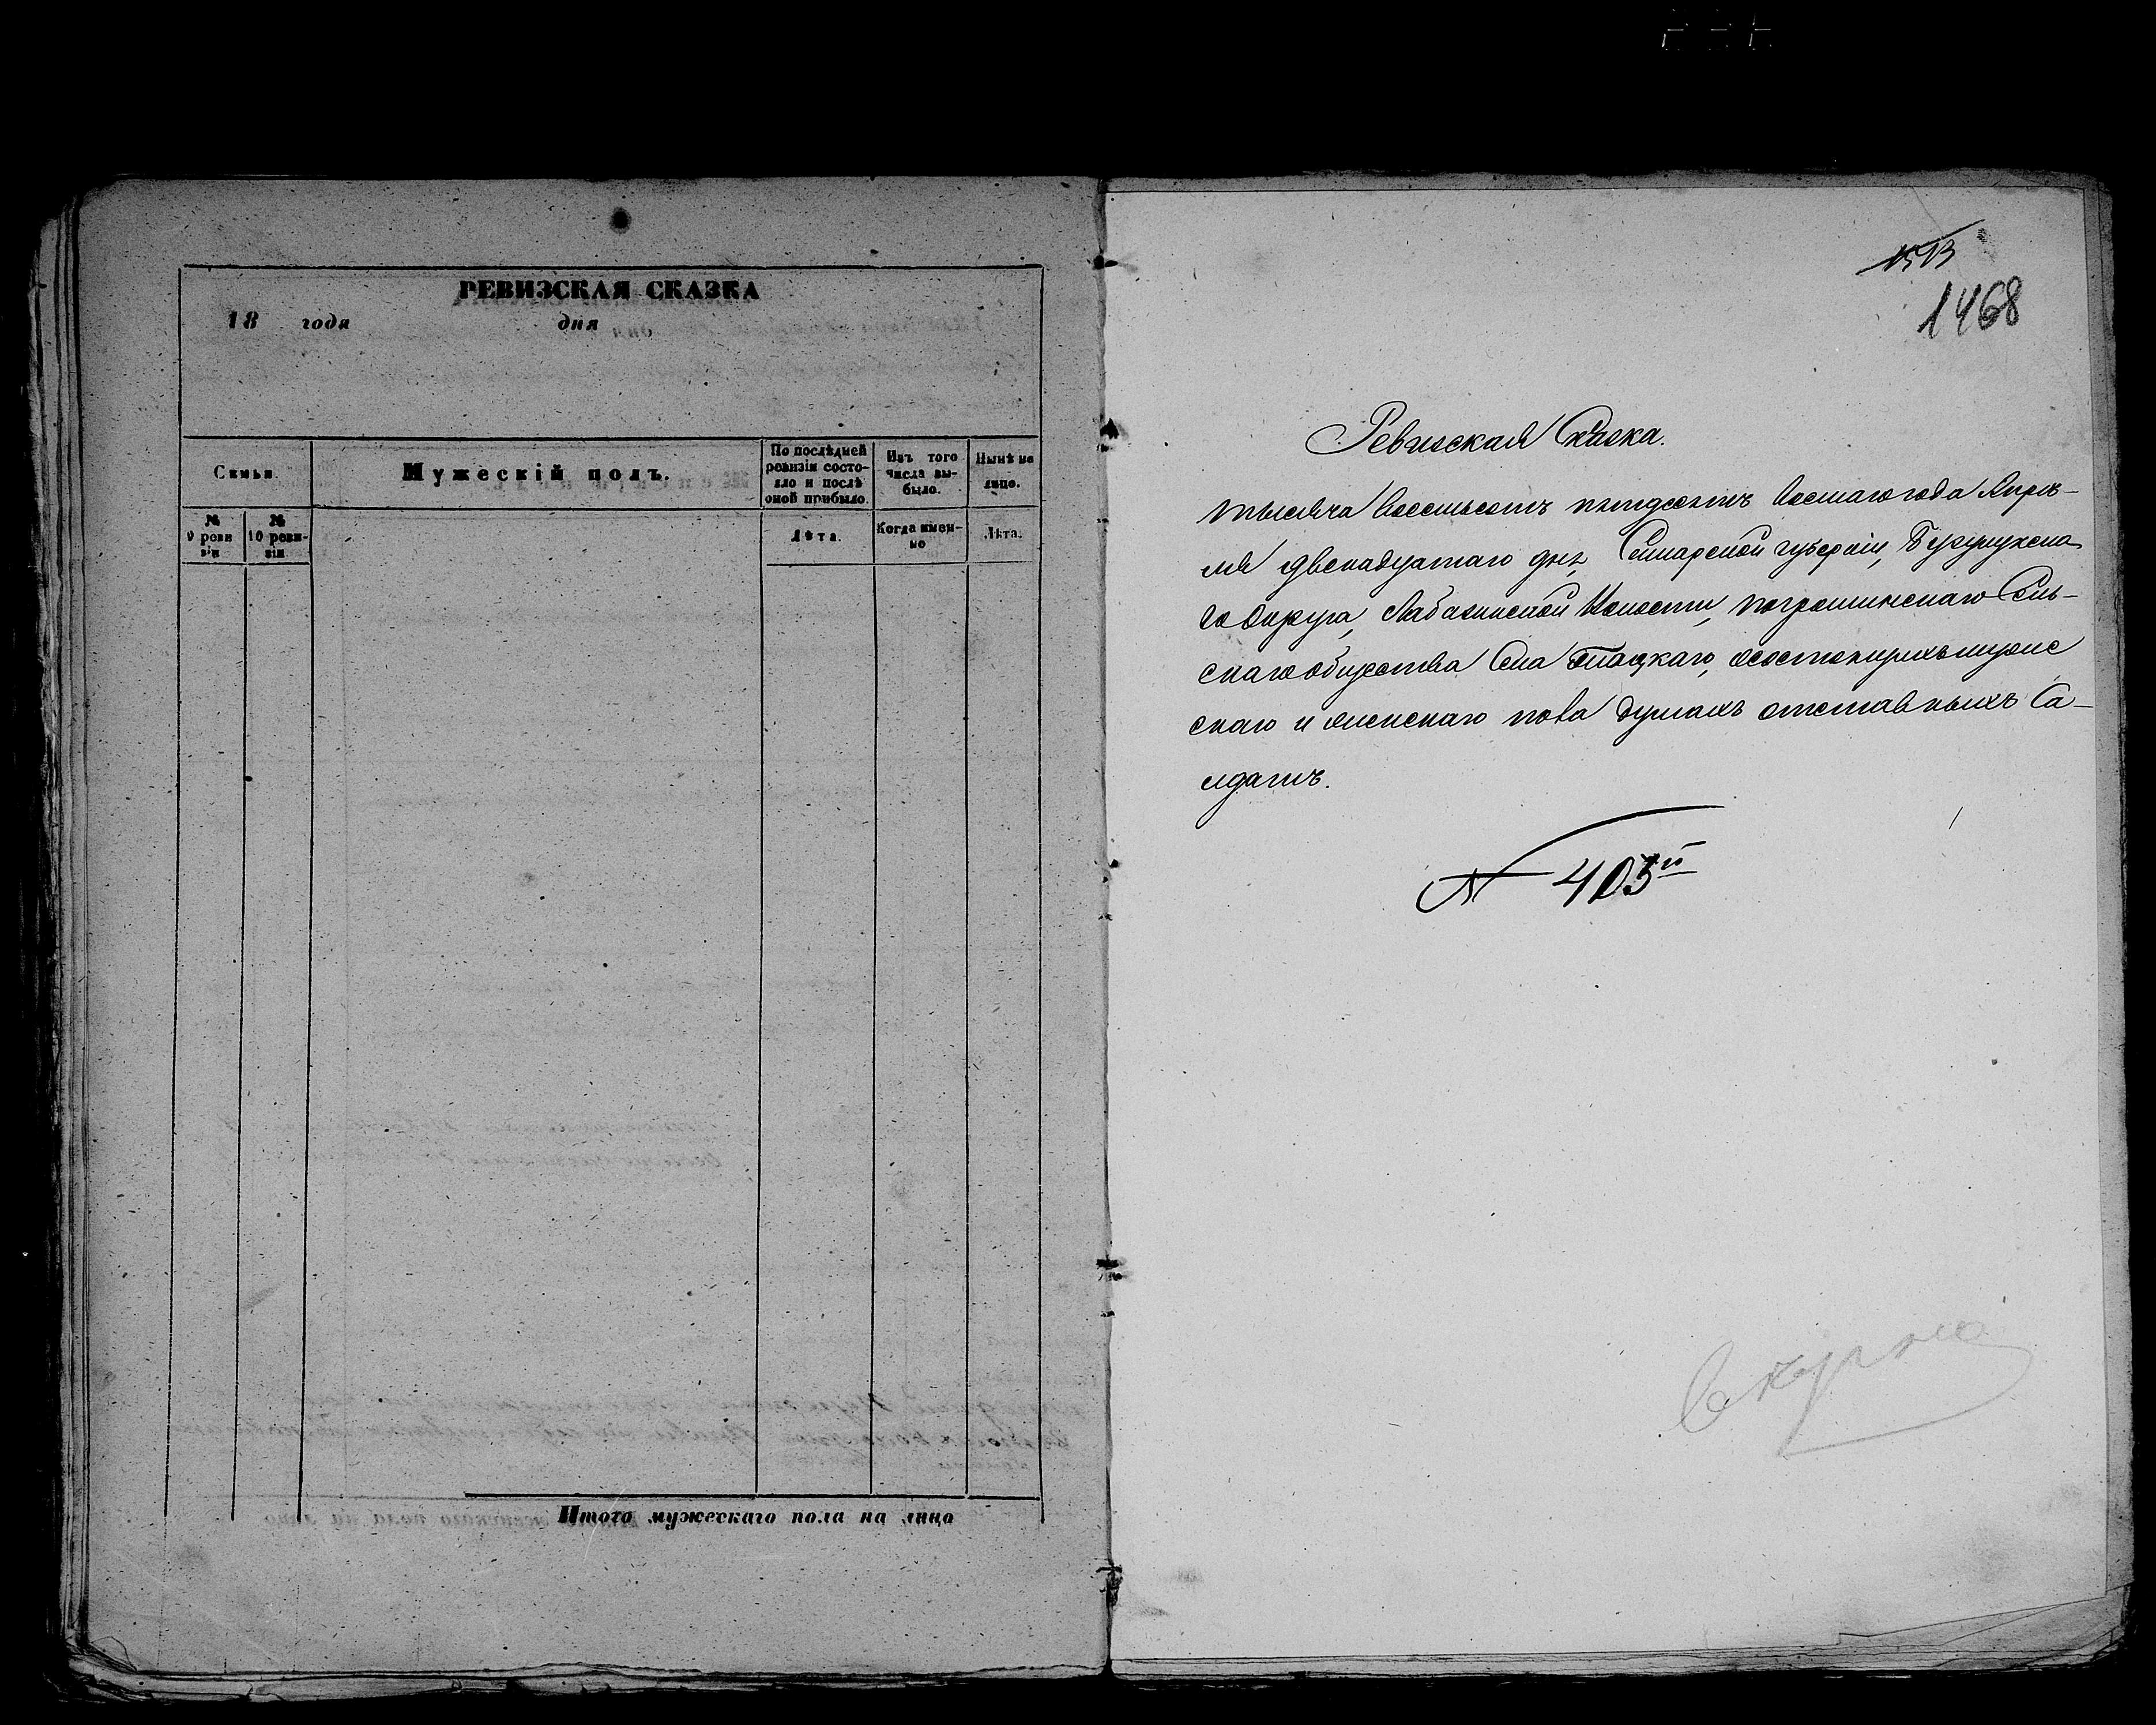 РЕВИЗСКАЯ СКАЗКА
18 года дня
Семьи.
Мужескій полъ.
По послѣдней ревизіи состояло и послѣ оной прибыло.
Изъ того числа выбыло.
Нынѣ на лицо.
№ 9 ревизіи
№ 10 ревизіи
Лѣта.
Когда именно
Лѣта.
Итого мужескаго пола на лицо
1513
1468
Ревизская Сказка.
тысяча восемьсотъ пятдесятъ восмаго года Апрѣ-
ля двенадцатаго дня, Самарской губерніи, Бузулукска
го округа, Лабазинской Волости, Погроминскаго Сель-
скаго общества Села Спацкаго, о состоящихъ мужес
скаго и женскаго пола душахъ отставныхъ Са-
лдатъ.
№ 403й